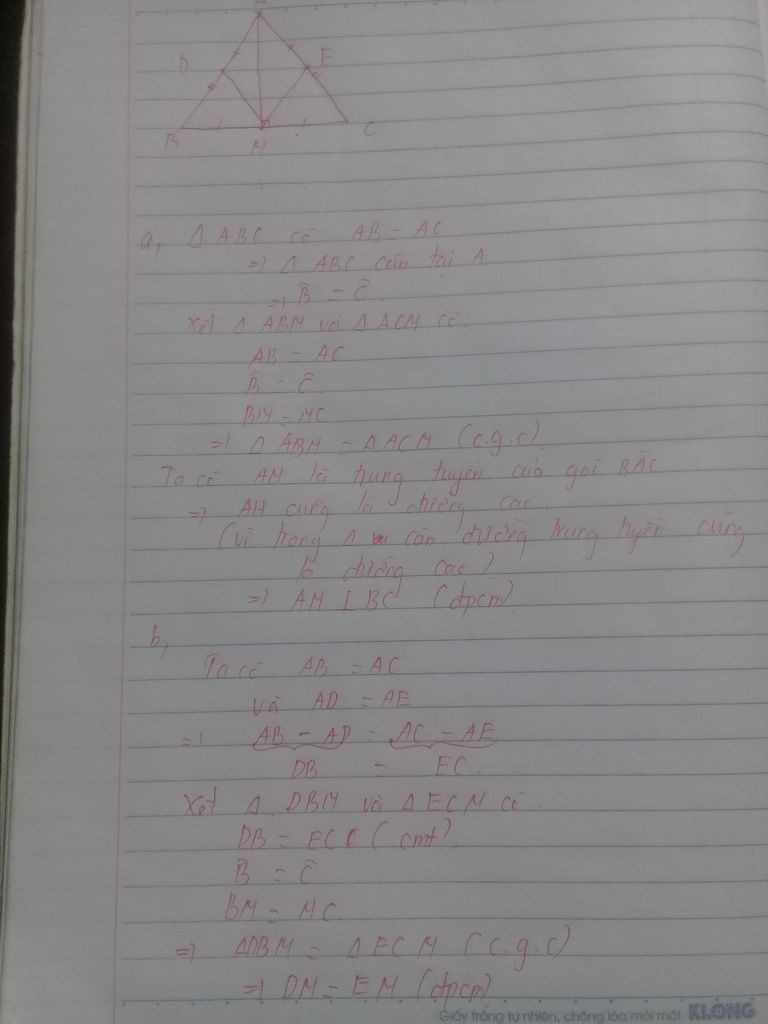 A
D
E
B
M
C
a, Δ ABC có AB = AC
=> Δ ABC cân tại A
=> B̂ = Ĉ
Xét Δ ABM và Δ ACM có
AB = AC
B̂ = Ĉ
BM = MC
=> Δ ABM = Δ ACM (c.g.c)
Ta có AM là trung tuyến của góc BAC
=> AM cũng là đường cao
(vì trong Δ cân đường trung tuyến cũng
là đường cao)
=> AM ⊥ BC (đpcm)
b,
Ta có AB = AC
và AD = AE
=> AB - AD = AC - AE
DB = EC
Xét Δ DBM và Δ ECM có
DB = EC (cmt)
B̂ = Ĉ
BM = MC
=> ΔDBM = Δ ECM (c.g.c)
=> DM = EM (đpcm)
Giấy trắng tự nhiên, chống lóa mỏi mắt KLONG